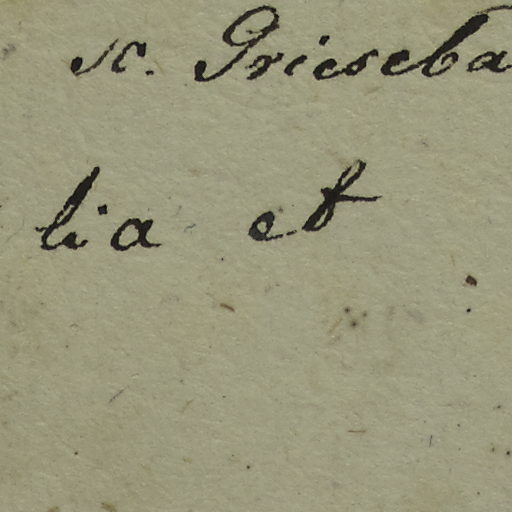 sc. Grieseba
lia et